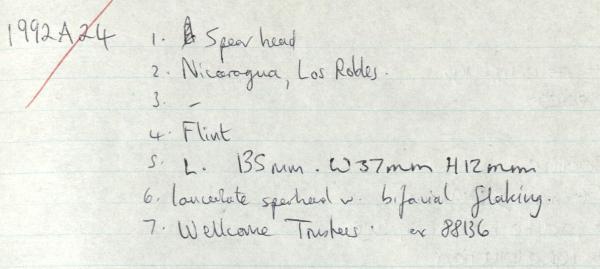 1992A24
1. Spearhead
2. Nicaragua, Los Robles.
3. –
4. Flint
5. L. 135mm. W 37mm H12mm
6. lanceolate spearhead w. bifacial flaking.
7. Wellcome Trustees. ex 88136